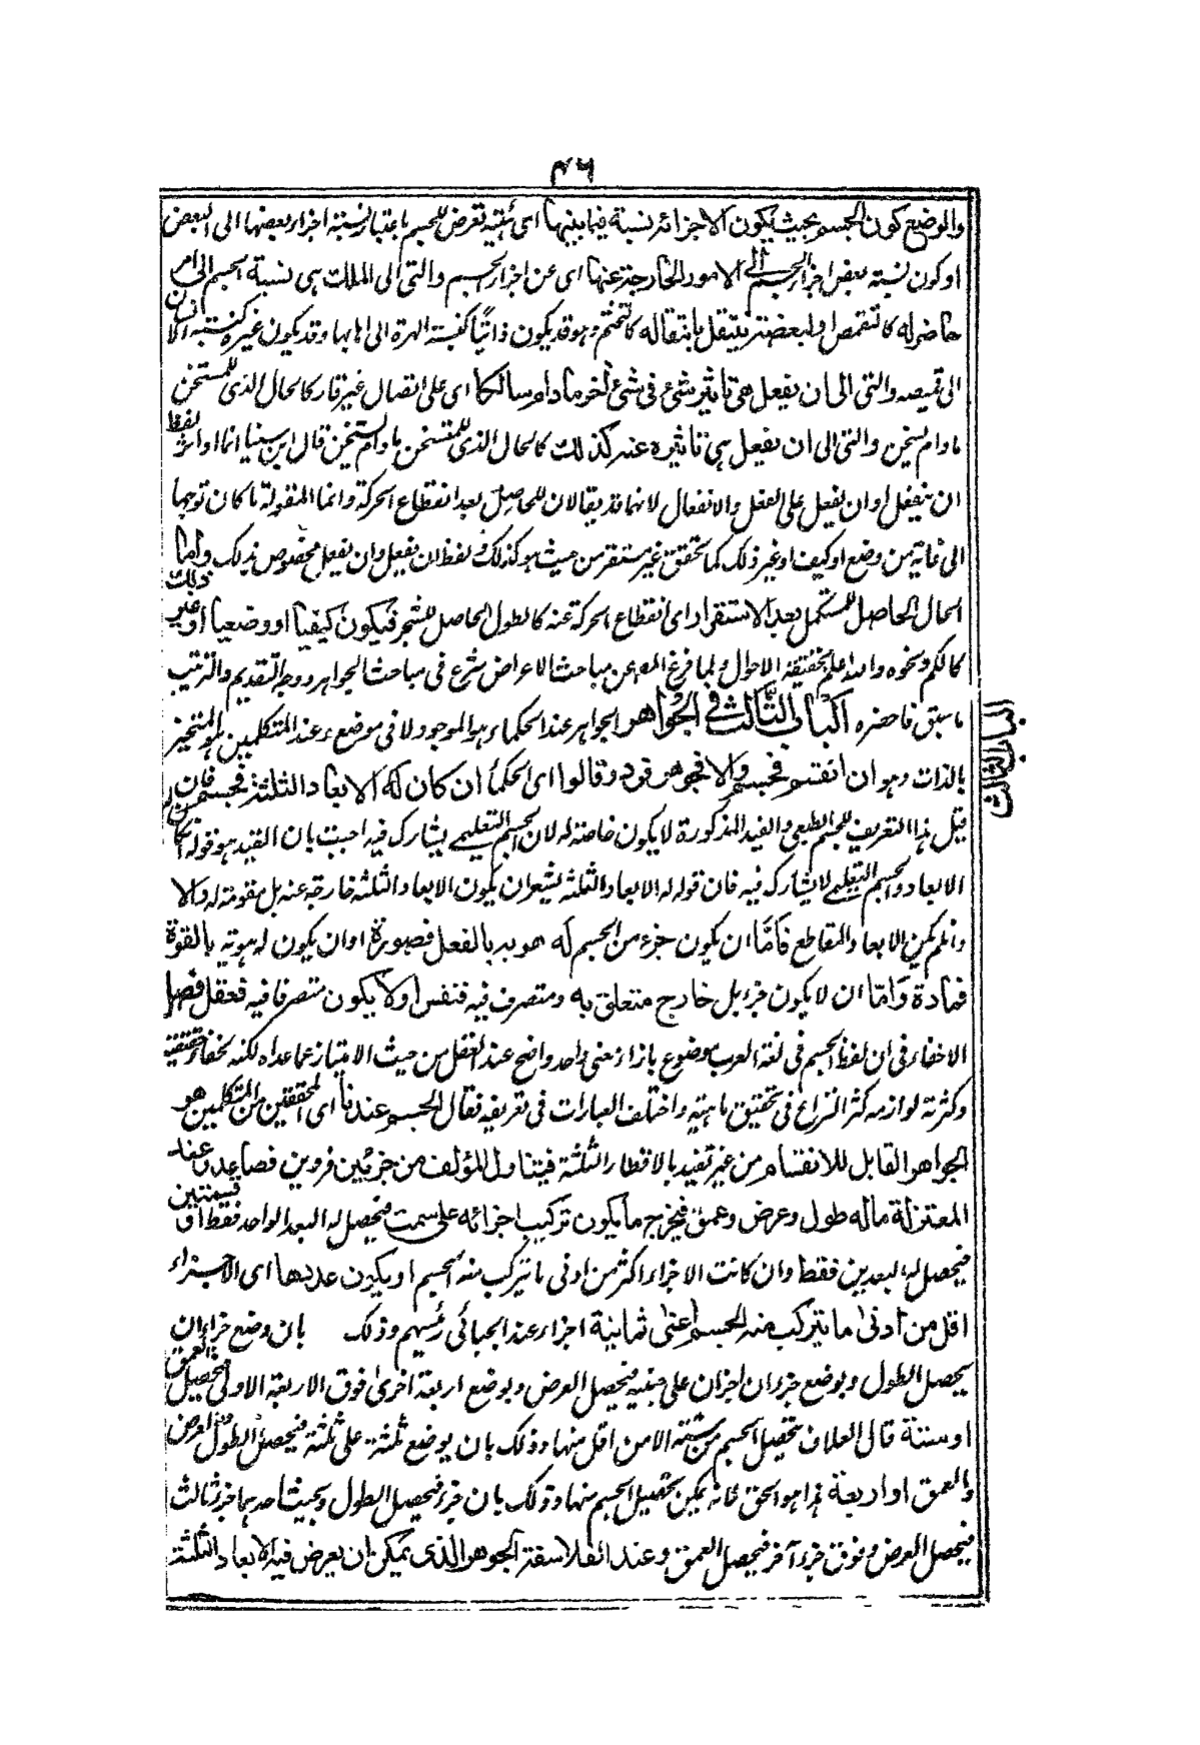 ٤٦
والوضع كون الجسم بحيث يكون لاجزائه نسبة فيما بينها اى هيئة تعرض للجسم باعتبار نسبة اجزاء بعضها الى البعض
او كون نسبة بعض اجزاء الجسم الى الامور الخارجة عنها اى عن اجزاء الجسم والتى الى الملك هى نسبة الجسم الى امر
حاضر له كالتقمص او لبعضه ينتقل بانتقاله كالتختم وهو قد يكون ذاتيا كنسبة الهرة الى اهابها وقد يكون غيره كنسبة الانسان
الى قميصه والتى الى ان يفعل هى تاثير شئ فى شئ آخر ما دام سالكا اى على اتصال غير قار كالحال الذى للمسخن
ما دام يسخن والتى الى ان ينفعل هى تاثره عنه كذلك كالحال الذى للمتسخن ما دام يتسخن قال ابن سينا انما اوثر لفظ
ان ينفعل او ان يفعل على الفعل والانفعال لانهما قد يقالان للحاصل بعد انقطاع الحركة وانما المقولة ما كان توجها
الى غاية من وضع او كيف او غير ذلك كما تحقق غير مستقر من حيث هو كذلك ولفظ ان ينفعل وان يفعل مخصوص بذلك واما
الحال الحاصل للمستكمل بعد الاستقرار اى انقطاع الحركة عنه كالطول الحاصل للشجر فيكون كيفيا او وضعيا او غير ذلك
كالكم ونحوه والله اعلم بحقيقة الاحوال ولما فرغ المص من مباحث الاعراض شرع فى مباحث الجواهر ووجه التقديم والترتيب
ما سبق فاحضره الباب الثالث فى الجواهر الجواهر عند الحكماء هو الموجود لا فى موضوع وعند المتكلمين هو المتحيز
بالذات وهو ان انقسم فجسم والا فجوهر فرد وقالوا اى الحكماء ان كان له الابعاد الثلثة فجسم فان
قيل هذا التعريف للجسم الطبعى والقيد المذكورة لا يكون خاصة له لان الجسم التعليمى يشارك فيه اجيب بان القيد هو قوله
الابعاد والجسم التعليمى لا يشاركه فيه فان قوله له الابعاد الثلثة يشعر ان يكون الابعاد الثلثة خارجة عنه بل مقومة له والا
وان لم يكن الابعاد والمقاطع فاما ان يكون جزء من الجسم له هو به بالفعل فصورة او ان يكون له هوته بالقوة
فمادة واما ان لا يكون جزء بل خارج متعلق به ومتصرف فيه فنفس او لا يكون متصرفا فيه فعقل فصل
الاخفاء فى ان لفظ الجسم فى لغة العرب موضوع بازاء معنى واحد واضح عند العقل من حيث الامتياز عما عداه لكنه لخفاء حقيقته
وكثرة لوازمه كثر النزاع فى تحقيق ماهيته واختلف العبارات فى تعريفه فقال الجسم عندنا اى المحققين من المتكلمين هو
الجواهر القابل للانقسام من غير تقييد بالاقطار الثلثة فيتناول المؤلف من جزئين فردين فصاعدا وعند
المعتزلة ماله طول وعرض وعمق فيخرج ما يكون تركيب اجزائه على سمت فيحصل له البعد الواحد فقط او سمتين
فيحصل له البعدين فقط وان كانت الاجزاء اكثر من ادنى ما يتركب منه الجسم او يكون عددها اى الاجزاء
اقل من ادنى ما يتركب منه الجسم اعنى ثمانية اجزاء عند الجبائى رئيسهم وذلك بان وضع جزاءان
يحصل الطول وبوضع جزءان اخران على جنبيه فيحصل العرض وبوضع اربعة اخرى فوق الاربعة الاولى فيحصل العمق
او ستة قال العلاف يحصل الجسم من ستة الا من اقل منها وذلك بان يوضع ثلثة على ثلثة فيحصل الطول والعرض
والعمق او اربعة هذا هو الحق فانه يمكن تحصيل الجسم منها وذلك بان جزء فيحصل الطول وبجنب احدهما جزء ثالث
فيحصل العرض وفوق جزء آخر فيحصل العمق وعند الفلاسفة الجوهر الذى يمكن ان يعرض فيه الابعاد الثلثة